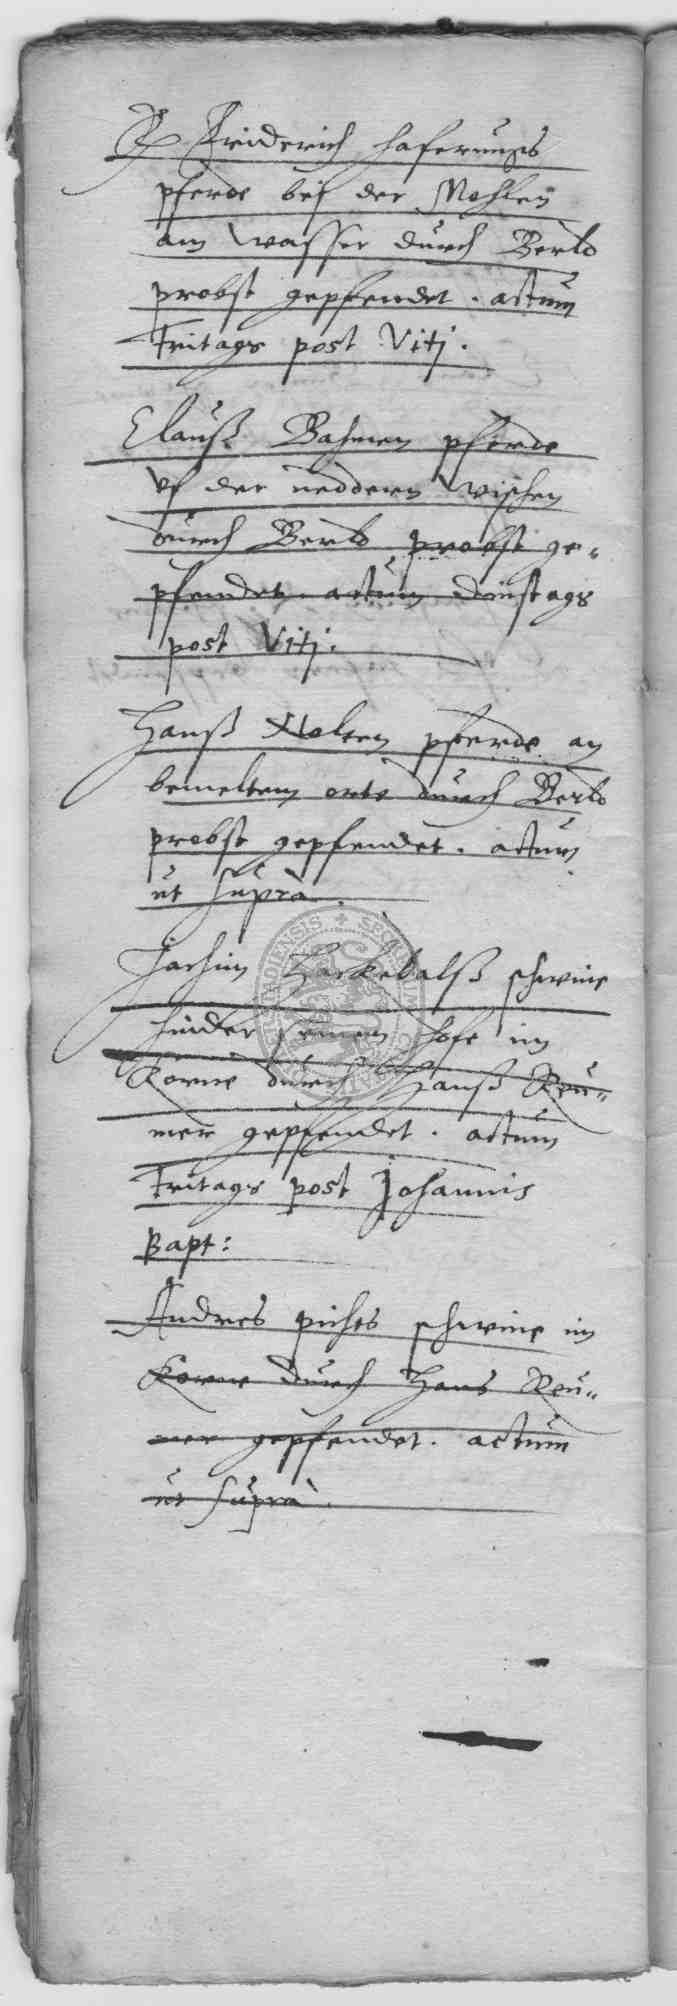 Friderich Haferungs
pferde bej der Mohlen
am Wasser durch Berld
probst gepfendet. actum
Fritags post Viti.
Clauß Bahmen pferde
uf der neddern Wischen
durch Berld probst ge-
pfendet. actum dinstags
post Viti.
Hanß Nolten pferde an
bemeltem orte durch Berld
probst gepfendet. actum
ut supra.
Jachim Harkebalß schwine
hinder seinem hofe im
Korne durch Hanß Reu-
mer gepfendet. actum
Fritags post Johannis
Bapt:
Andres pichts schwine im
Korne durch Hans Reu-
mer gepfendet. actum
ut supra.